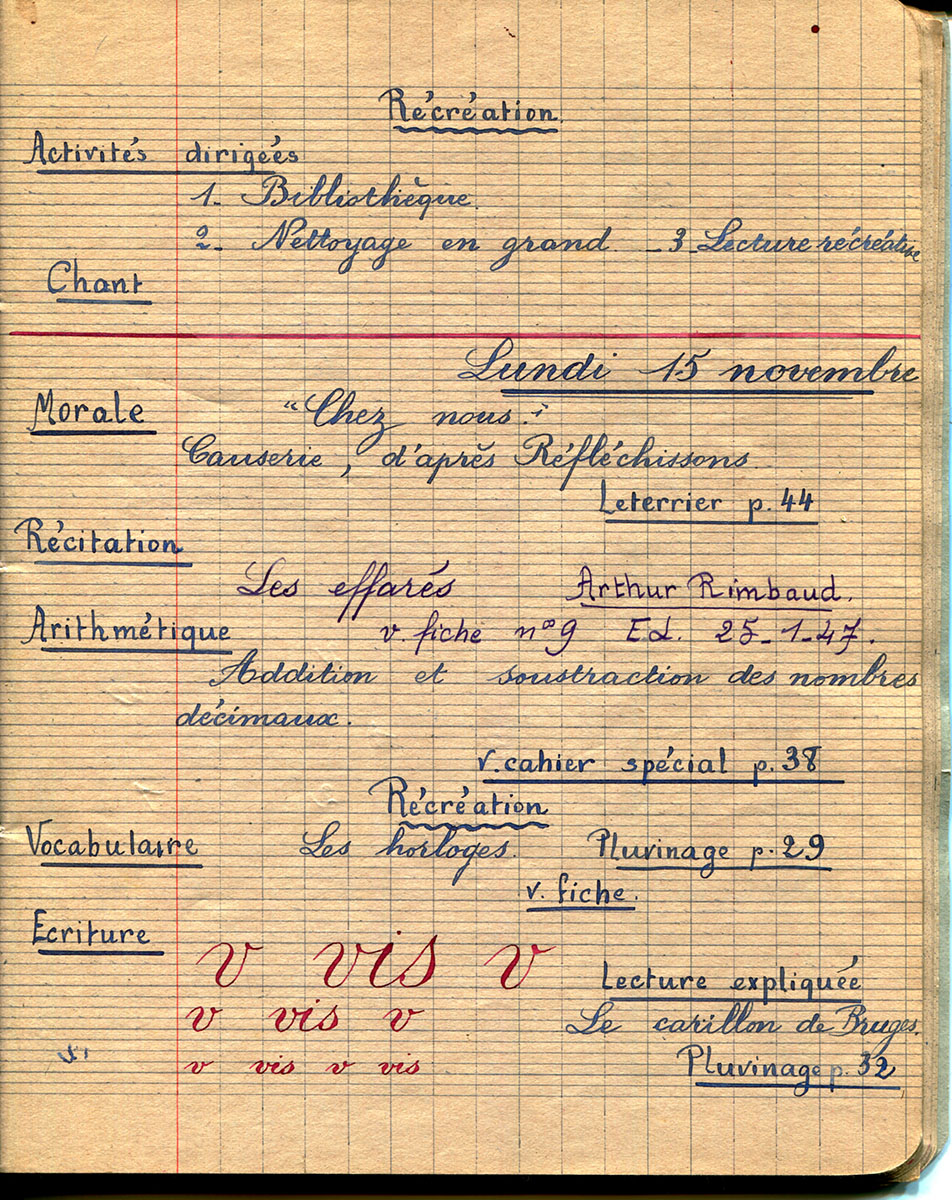 Récréation.
Activités dirigées
1_ Bibliothèque.
2_ Nettoyage en grand _3_Lecture récréative
Chant
Lundi 15 novembre
Morale "Chez nous."
Causerie, d'après Réfléchissons
Leterrier p.44
Récitation
Les effarés Arthur Rimbaud.
Arithmétique v. fiche n° 9 Ed. 25_1_47.
Addition et soustraction des nombres
décimaux.
v.cahier spécial p.38
Récréation
Vocabulaire Les horloges. Pluvinage p.29
v. fiche.
Ecriture
v vis v
Lecture expliquée
v vis v Le carillon de Bruges.
v vis v vis Pluvinage p.32